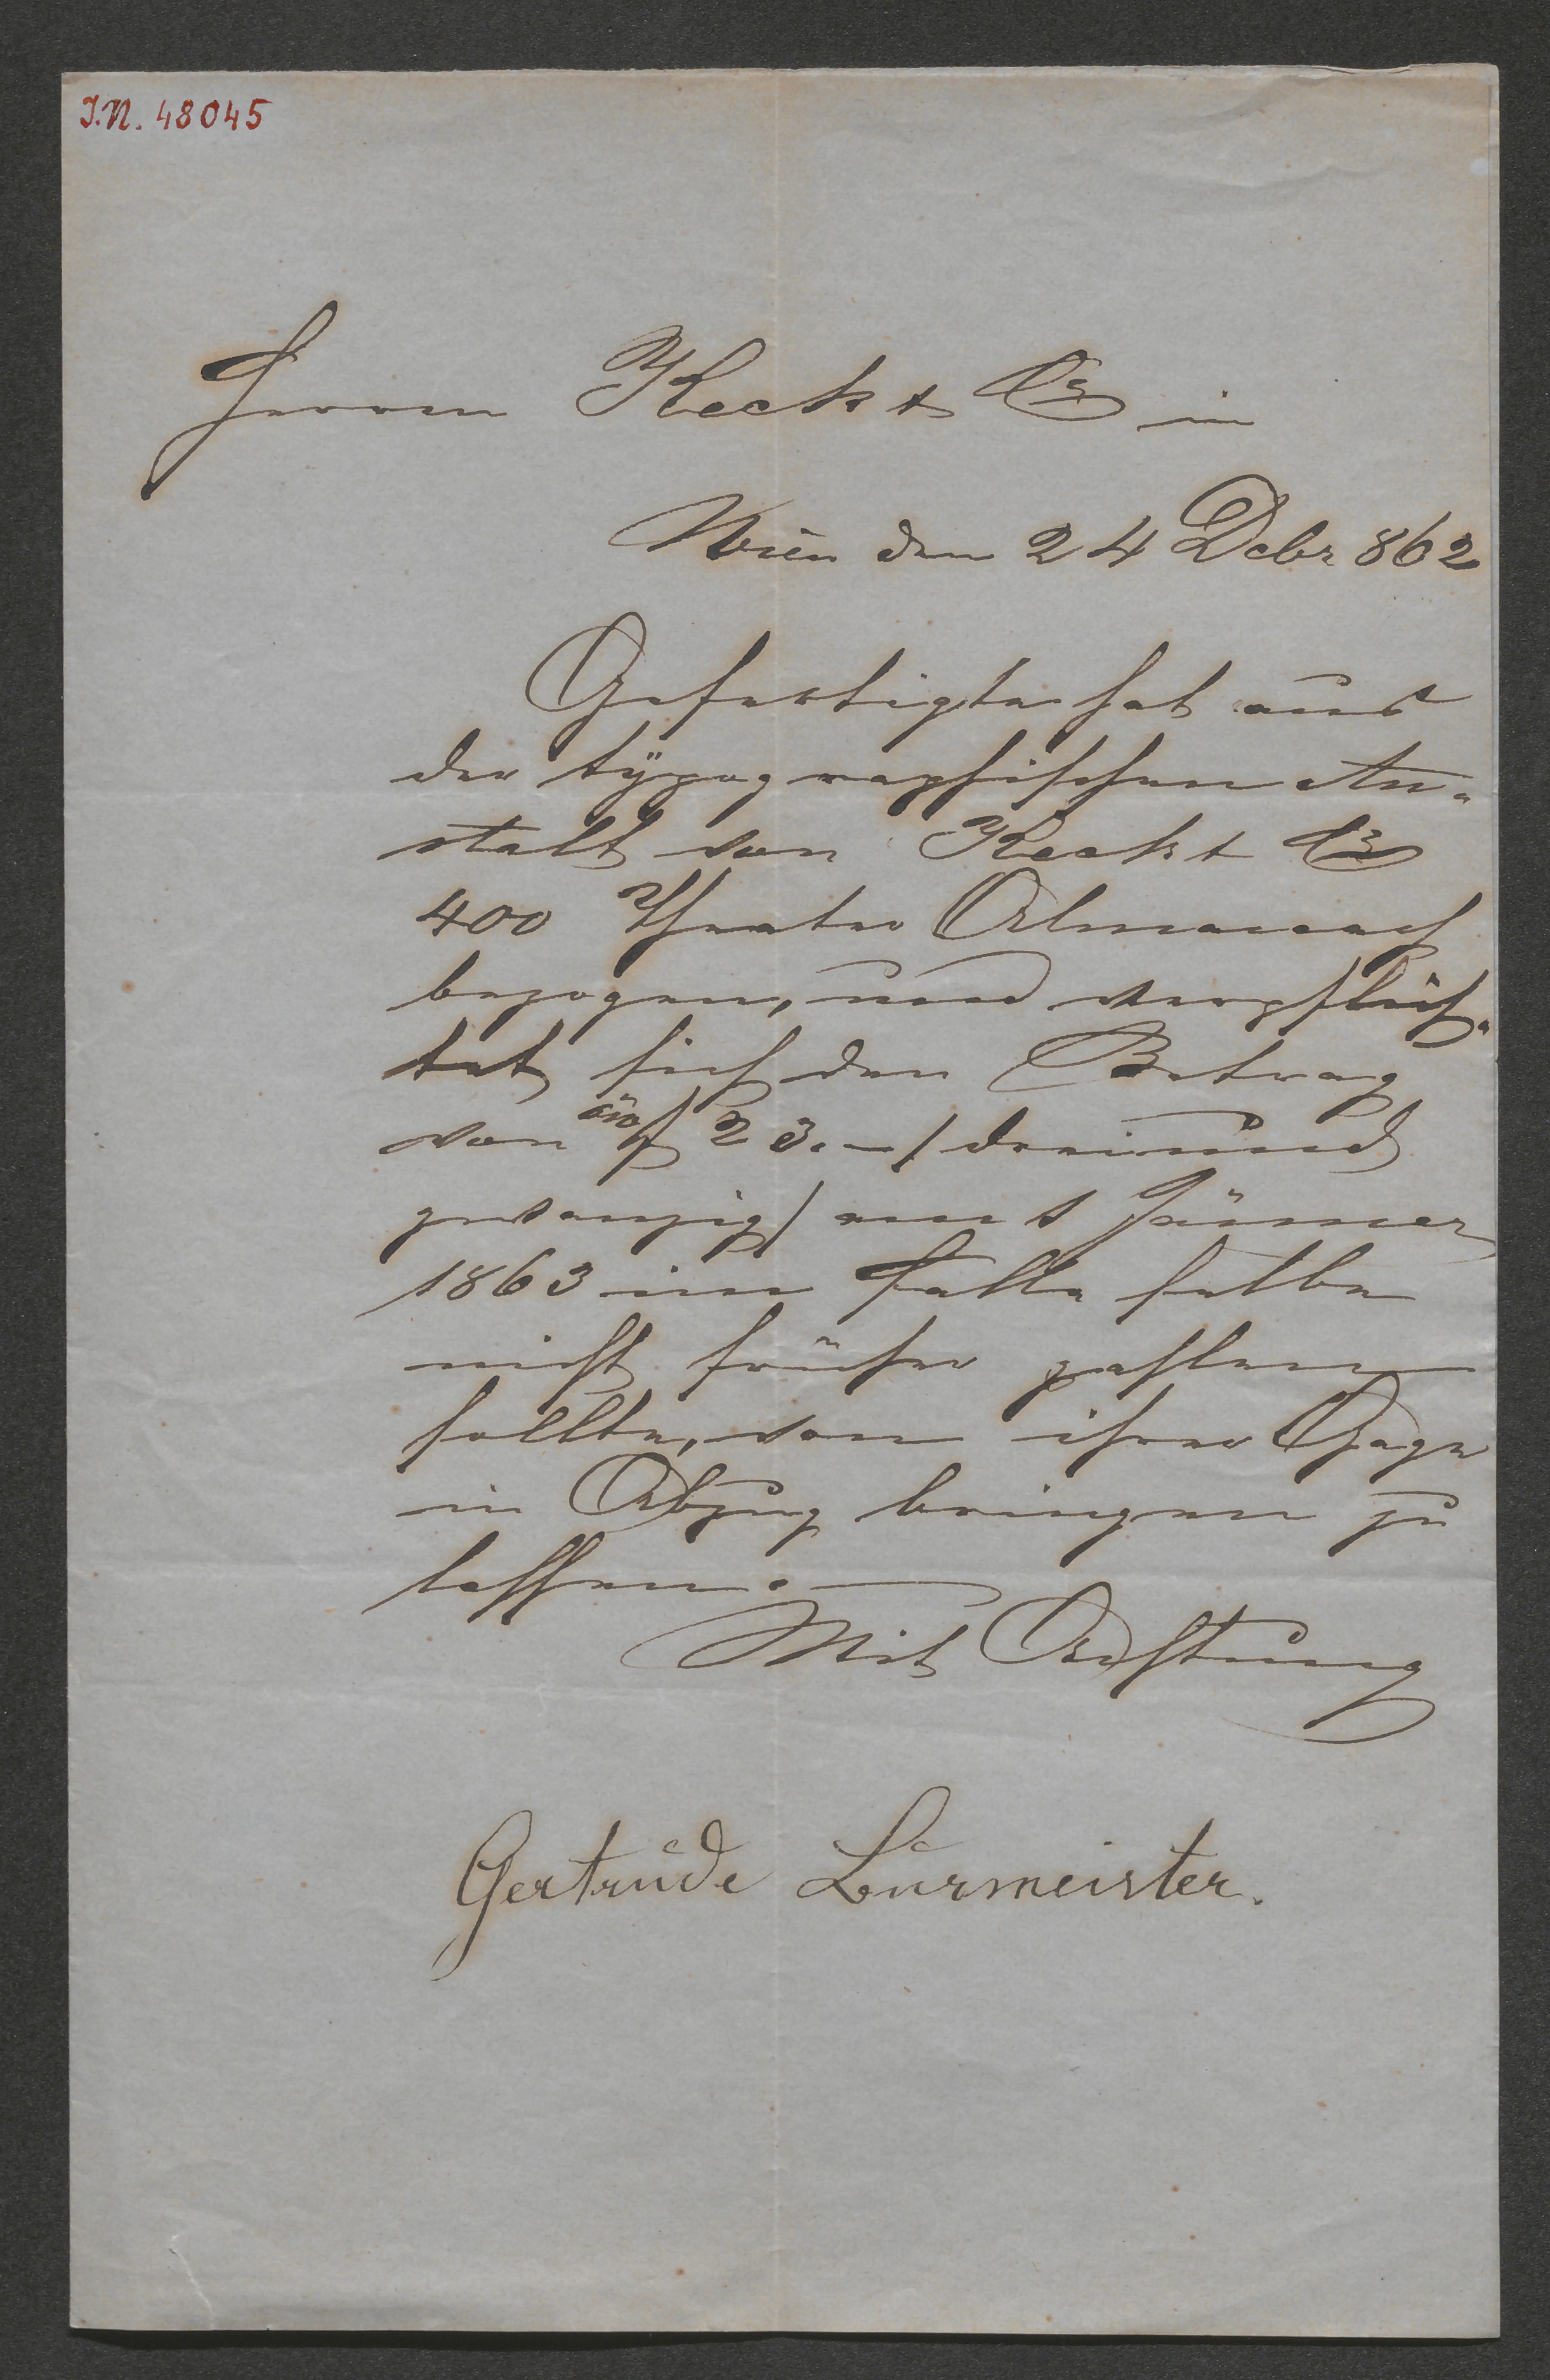 I.N. 48045
Herren Keck & Co in
Wien den 24 Debr 862
Gefertigte hat aus
der typographischen An-
stalt von Keck & Co
400 Theater Almanach
bezogen, und verpflich-
tet sich den Betrag
von öw f 23.–/ dreiund
zwanzig/ am 1 Jänner
1863 im Falle selbe
nicht früher zahlen
sollte, von ihrer Gage
in Abzug bringen zu
lassen.
Mit Achtung
Gertrude Burmeister.